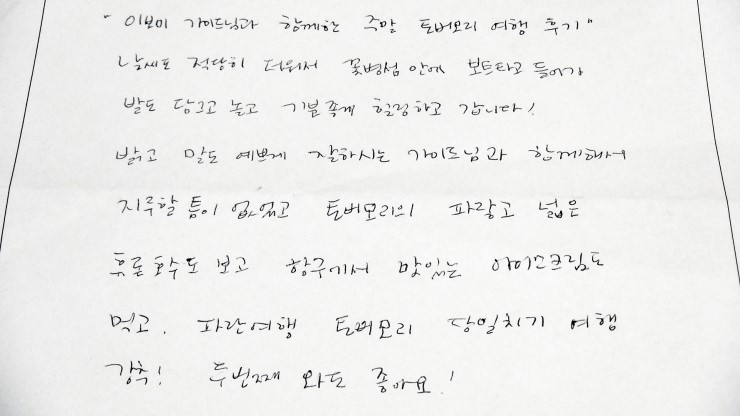 "이보미 가이드님과 함께한 주말 토버모리 여행 후기"
날세도 적당히 더워서 꽃병섬 안에 보트타고 들어가
발도 담그고 놀고 기분좋게 힐링하고 갑니다!
밝고 말도 예쁘게 잘하시는 가이드님과 함께해서
지루할 틈이 없었고 토버모리의 파랗고 넓은
휴론호수도 보고 항구에서 맛있는 아이스크림도
먹고. 파란여행 토버모리 당일치기 여행
강추! 두번째 와도 좋아요!